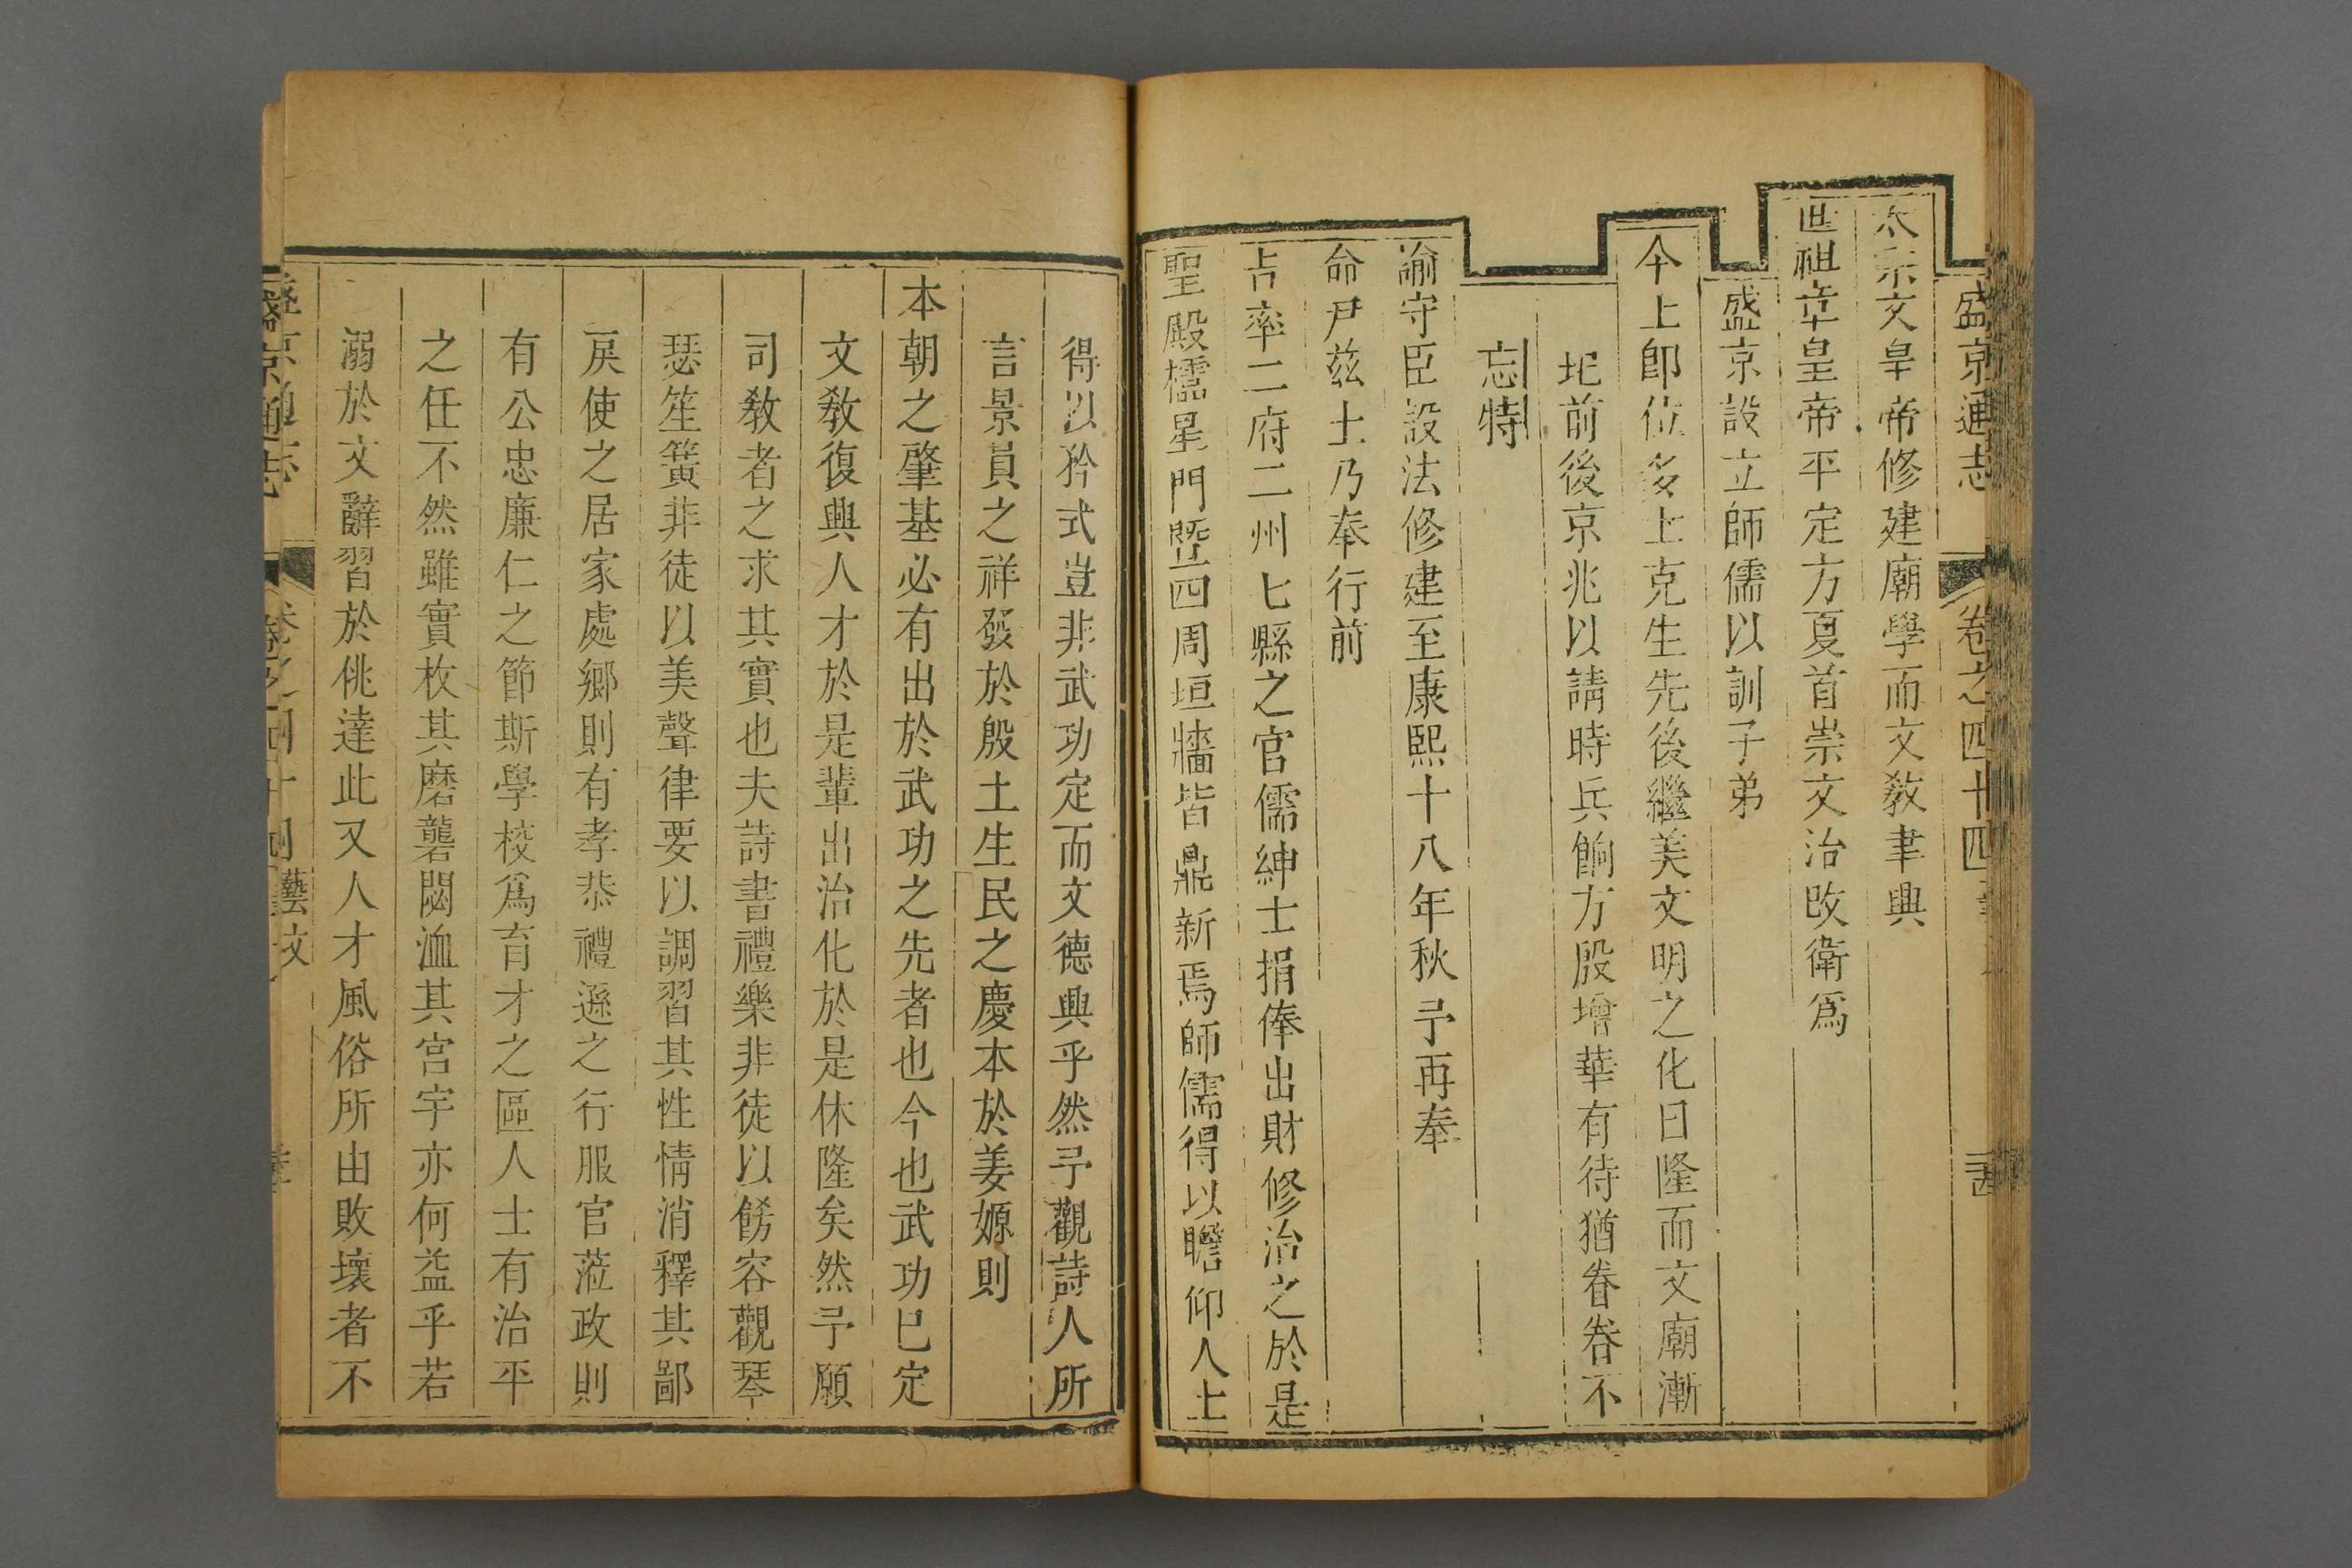 盛京通志 卷之四十四
太宗文皇帝修建廟學而文敎聿興
世祖章皇帝平定方夏首崇文治改衛爲
盛京設立師儒以訓子弟
今上卽位多士克生先後繼美文明之化日隆而文廟漸
圮前後京兆以請時兵餉方殷增華有待猶眷眷不
忘特
諭守臣設法修建至康熙十八年秋予再奉
命尹兹土乃奉行前
旨率二府二州七縣之官儒紳士捐俸出財修治之於是
聖殿櫺星門曁四周垣牆皆鼎新焉師儒得以瞻仰人士
得以矜式豈非武功定而文德興乎然予觀詩人所
言景員之祥發於殷土生民之慶本於姜嫄則
本朝之肇基必有出於武功之先者也今也武功已定
文敎復興人才於是輩出治化於是休隆矣然予願
司敎者之求其實也夫詩書禮樂非徒以餝容觀琴
瑟笙簧非徒以美聲律要以調習其性情消釋其鄙
戾使之居家處鄉則有孝恭禮遜之行服官蒞政則
有公忠廉仁之節斯學校爲育才之區人士有治平
之任不然雖實枚其磨礱閟洫其宮宇亦何益乎若
溺於文辭習於佻達此又人才風俗所由敗壞者不
盛京通志 卷之四十四 藝文